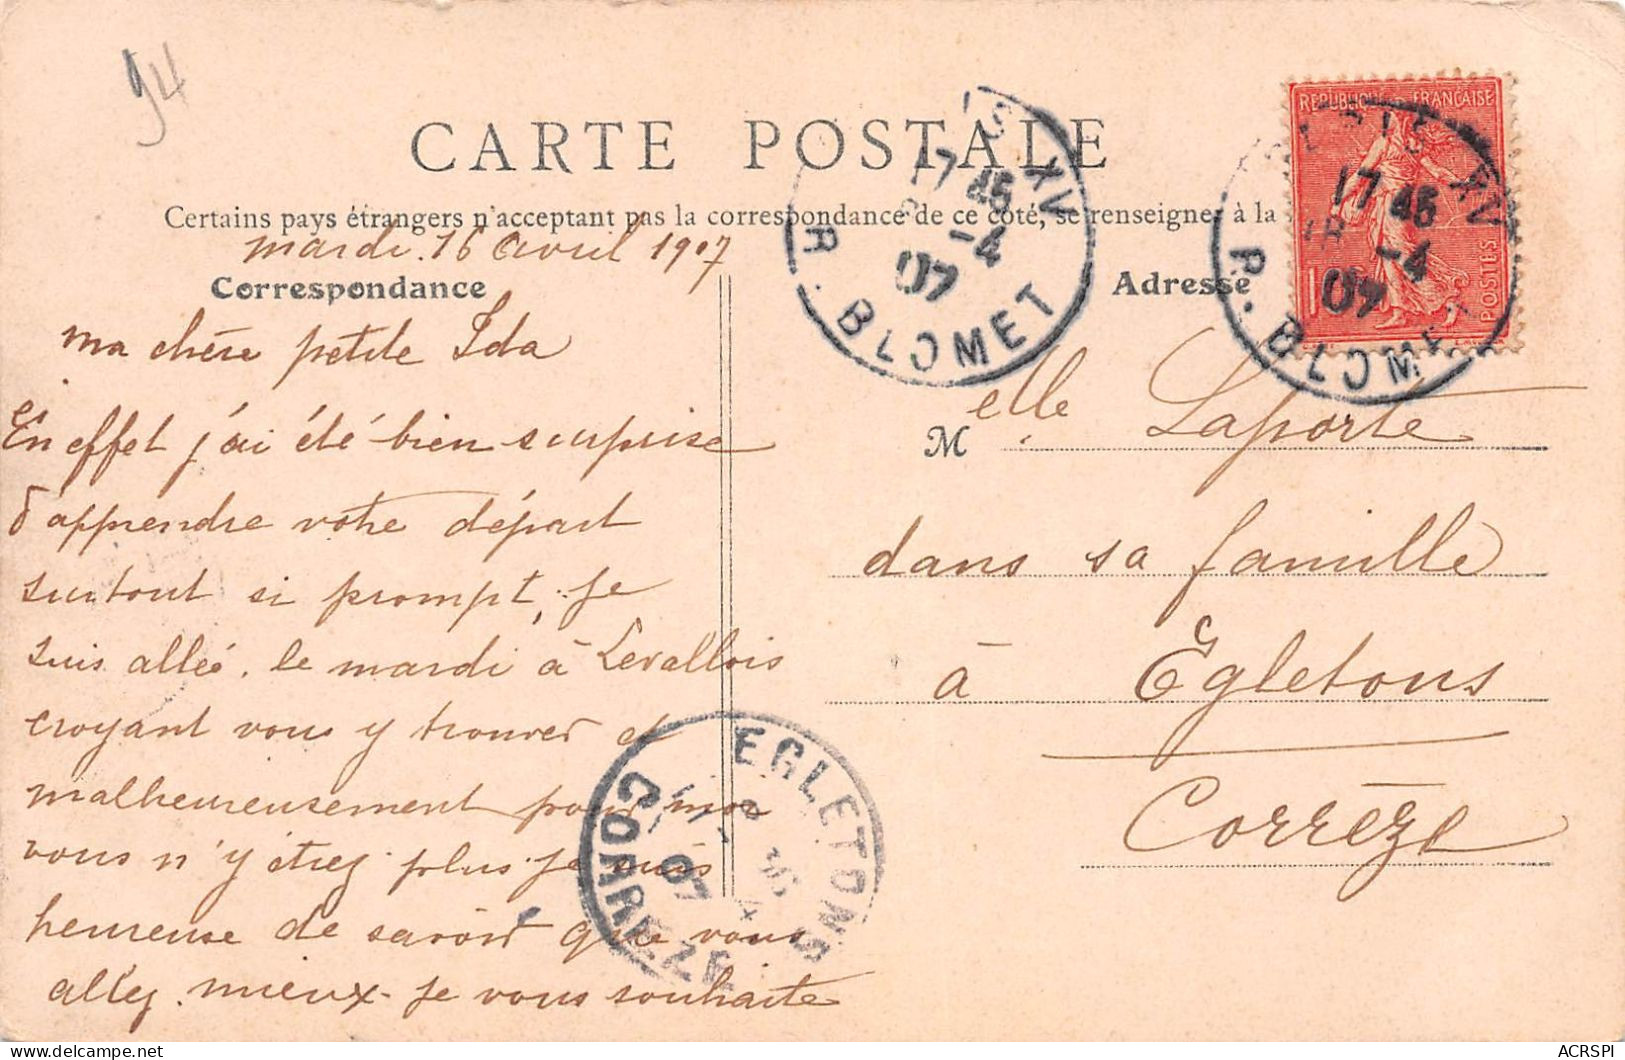 94
CARTE POSTALE
Certains pays étrangers n'acceptant pas la correspondance de ce côté, se renseigner à la
mardi. 16 Avril 1907
Correspondance
ma chère petite Ida
En effet j'ai été bien surprise
d'apprendre votre départ
surtout si prompt, je
suis allée. le mardi à Levallois
croyant vous y trouver et
malheureusement pour moi
vous n'y étiez plus je suis
heureuse de savoir que vous
allez mieux - je vous souhaite
Adresse
M elle Laporte
dans sa famille
à Egletons
Corrèze
REPUBLIQUE FRANÇAISE
POSTES
10
PARIS XV
17 45
16 -4
07
R. BLOMET
S XV
17 45
-4
07
R. BLOMET
EGLETONS
07
CORREZE
ACRSPI